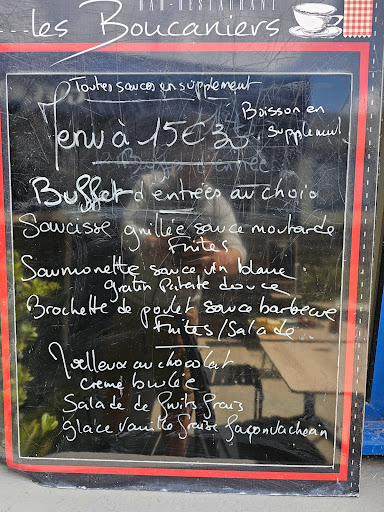 BAR-RESTAURANT
les Boucaniers
Toutes sauces en supplément
Boisson en
supplément
Menu à 15€
Buffet d'entrées au choix
Saucisse grillée sauce moutarde
Frites
Saumonette sauce vin blanc
gratin Patate douce
Brochette de poulet sauce barbecue
Frites/Salade
Moelleux au chocolat
creme brulée
Salade de fruits frais
glace vanille fraise façon vacherin